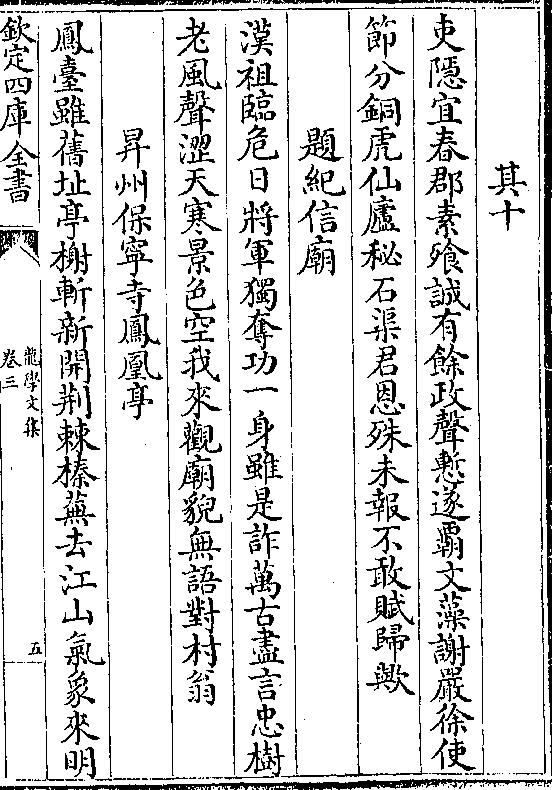 其十
吏隱宜春郡素飱誠有餘政聲慙遂霸文藻謝嚴徐使
節分銅虎仙廬秘石渠君恩殊未報不敢賦歸歟
題紀信廟
漢祖臨危日將軍獨奪功一身雖是詐萬古盡言忠樹
老風聲澀天寒景色空我來觀廟貌無語對村翁
昇州保寧寺鳳凰亭
鳳臺雖舊址亭榭斬新開荆棘榛蕪去江山氣象來明
欽定四庫全書
龍學文集
卷三
五